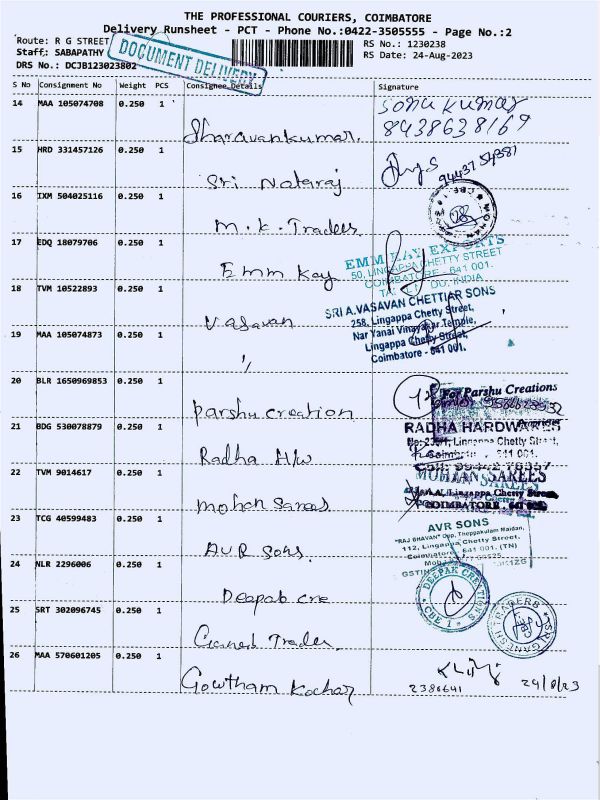 THE PROFESSIONAL COURIERS, COIMBATORE
Delivery Runsheet - PCT - Phone No.:0422-3505555 - Page No.:2
Route: R G STREET
RS No.: 1230238
Staff: SABAPATHY
RS Date: 24-Aug-2023
DRS No.: DCJB123023802
DOCUMENT DELIVERY
S No Consignment No Weight PCS Consignee Details Signature
14 MAA 105074708 0.250 1
Sharavankumar.
Sonu Kumar
8438638169
15 HRD 331457126 0.250 1
Sri Nataraj
94437 54381
16 IXM 504025116 0.250 1
M.K. Traders
17 EDQ 18079706 0.250 1
Emm Kay
EMM KAY EXPORTS
50, LINGAPPA CHETTY STREET
COIMBATORE - 641 001.
INDIA
18 TVM 10522893 0.250 1
Vasavan
SRI A.VASAVAN CHETTIAR SONS
258, Lingappa Chetty Street,
Nar Yanai Vinayakar Temple,
Lingappa Chetty Street,
Coimbatore - 641 001.
19 MAA 105074873 0.250 1
"
20 BLR 1650969853 0.250 1
Parshu Creation
For Parshu Creations
Proprietor
21 BDG 530078879 0.250 1
Radha H/w
RADHA HARDWARES
Lingappa Chetty Street,
Coimbatore - 641 001.
22 TVM 9014617 0.250 1
Mohan Sarees
MOHAN SAREES
Lingappa Chetty Street
COIMBATORE - 641 001
23 TCG 40599483 0.250 1
AVR Sons.
AVR SONS
"RAJ BHAVAN" Opp. Theppakulam Maidan,
112, Lingappa Chetty Street,
Coimbatore 641 001. (TN)
24 NLR 2296006 0.250 1
Deepak cre
DEEPAK CREATIONS
CBE 1
25 SRT 302096745 0.250 1
Ganesh Trader
SRI GANESH TRADERS
26 MAA 570601205 0.250 1
Gowtham Kochar
2380641
24/8/23